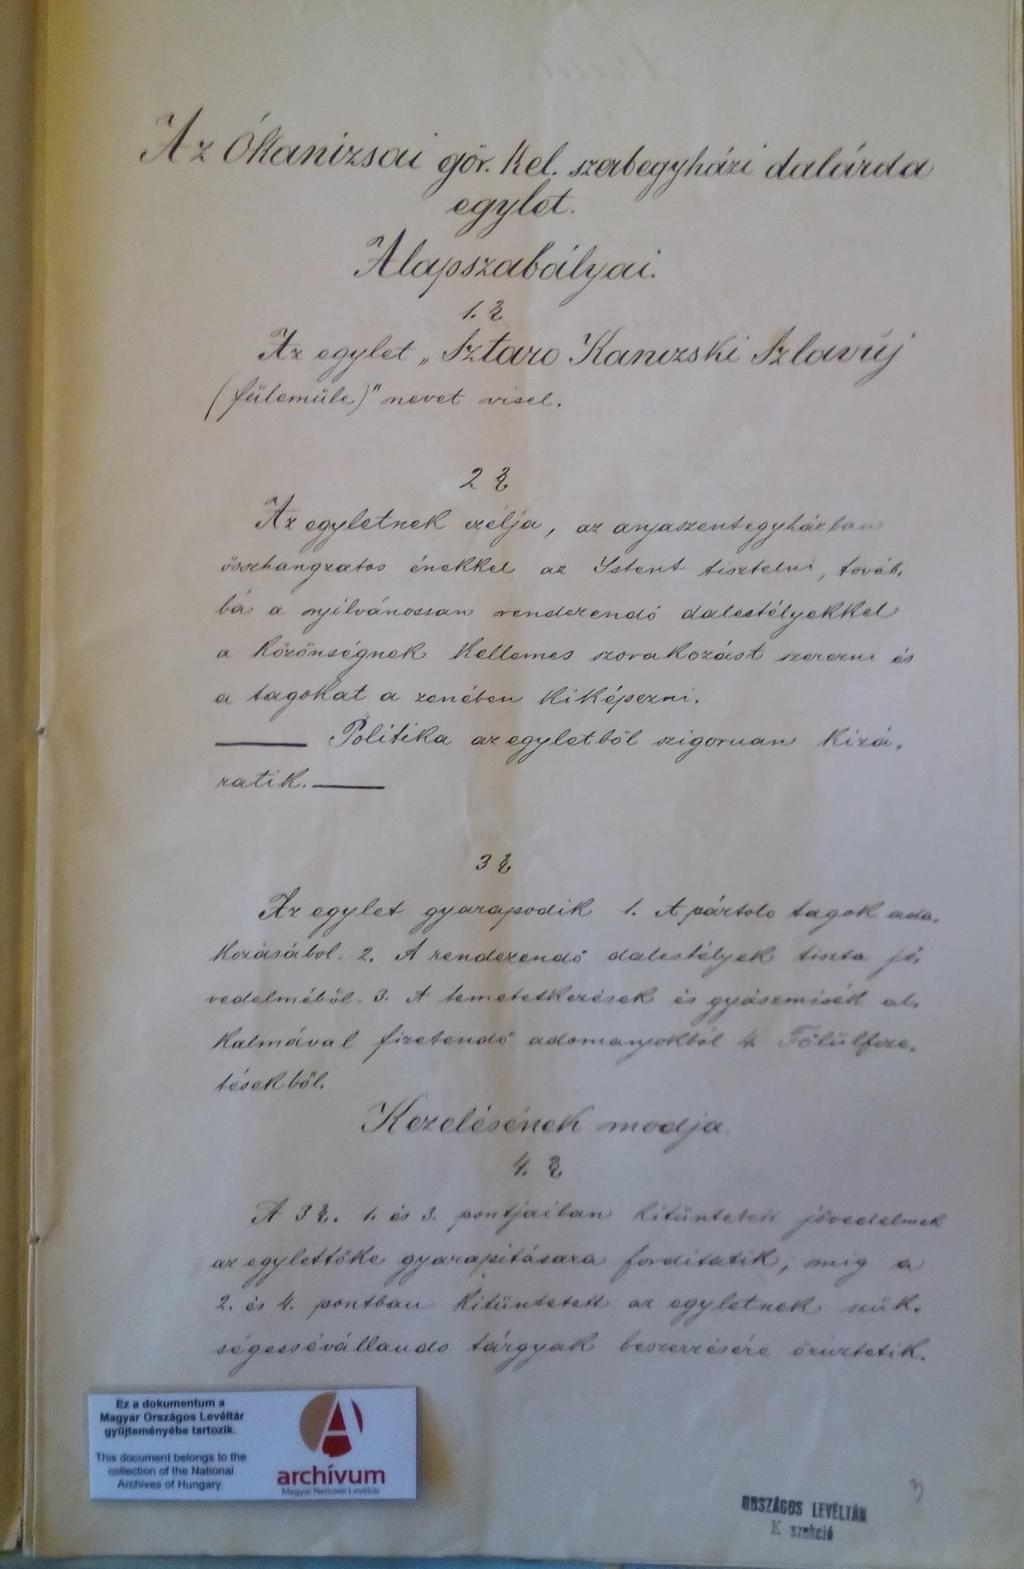 Az Ókanizsai gör. kel. szerbegyházi dalárda
egylet.
Alapszabályai.
1. §
Az egylet „Sztaro Kanizski Szlavúj
(fülemüle)" nevet visel.
2 §
Az egyletnek czélja, az anyaszentegyházban
összhangzatos énekkel az Istent tisztelni, továb,
bá a nyilvánossan rendezendő dalestélyekkel
a közönségnek kellemes szorakozást szerezni és
a tagokat a zenében kiképezni.
Politika az egyletből szigoruan kizá,
ratik.
3 §
Az egylet gyarapodik 1. A pártoló tagok ada,
kozásábol. 2. A rendezendő dalestélyek tiszta jö,
vedelméből. 3. A temetetkezések és gyászmisék al,
kalmával fizetendő adományokból 4. Fölülfize,
tésekből.
Kezelésének modja
4. §
A 3 §. 1. és 3. pontjaiban kitüntetett jövedelmek
az egylettőke gyarapitására forditatik, mig a
2. és 4. pontban kitüntetett az egyletnek szük,
ségessévállando tárgyak beszerzésére
Ez a dokumentum a
Magyar Országos Levéltár
gyűjteményébe tartozik.
This document belongs to the
collection of the National
Archives of Hungary.
archívum
Magyar Nemzeti Levéltár
ORSZÁGOS LEVÉLTÁR
K szekció
3